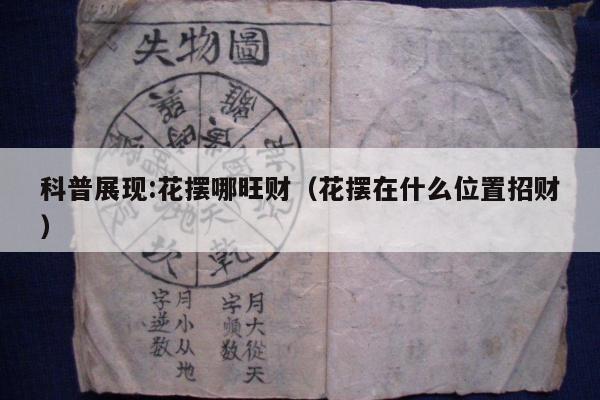 失物圖
離
科普展现:花摆哪旺财（花摆在什么位置招财
）
天
地
乾
月大從天
字順數
月小从地
字逆數